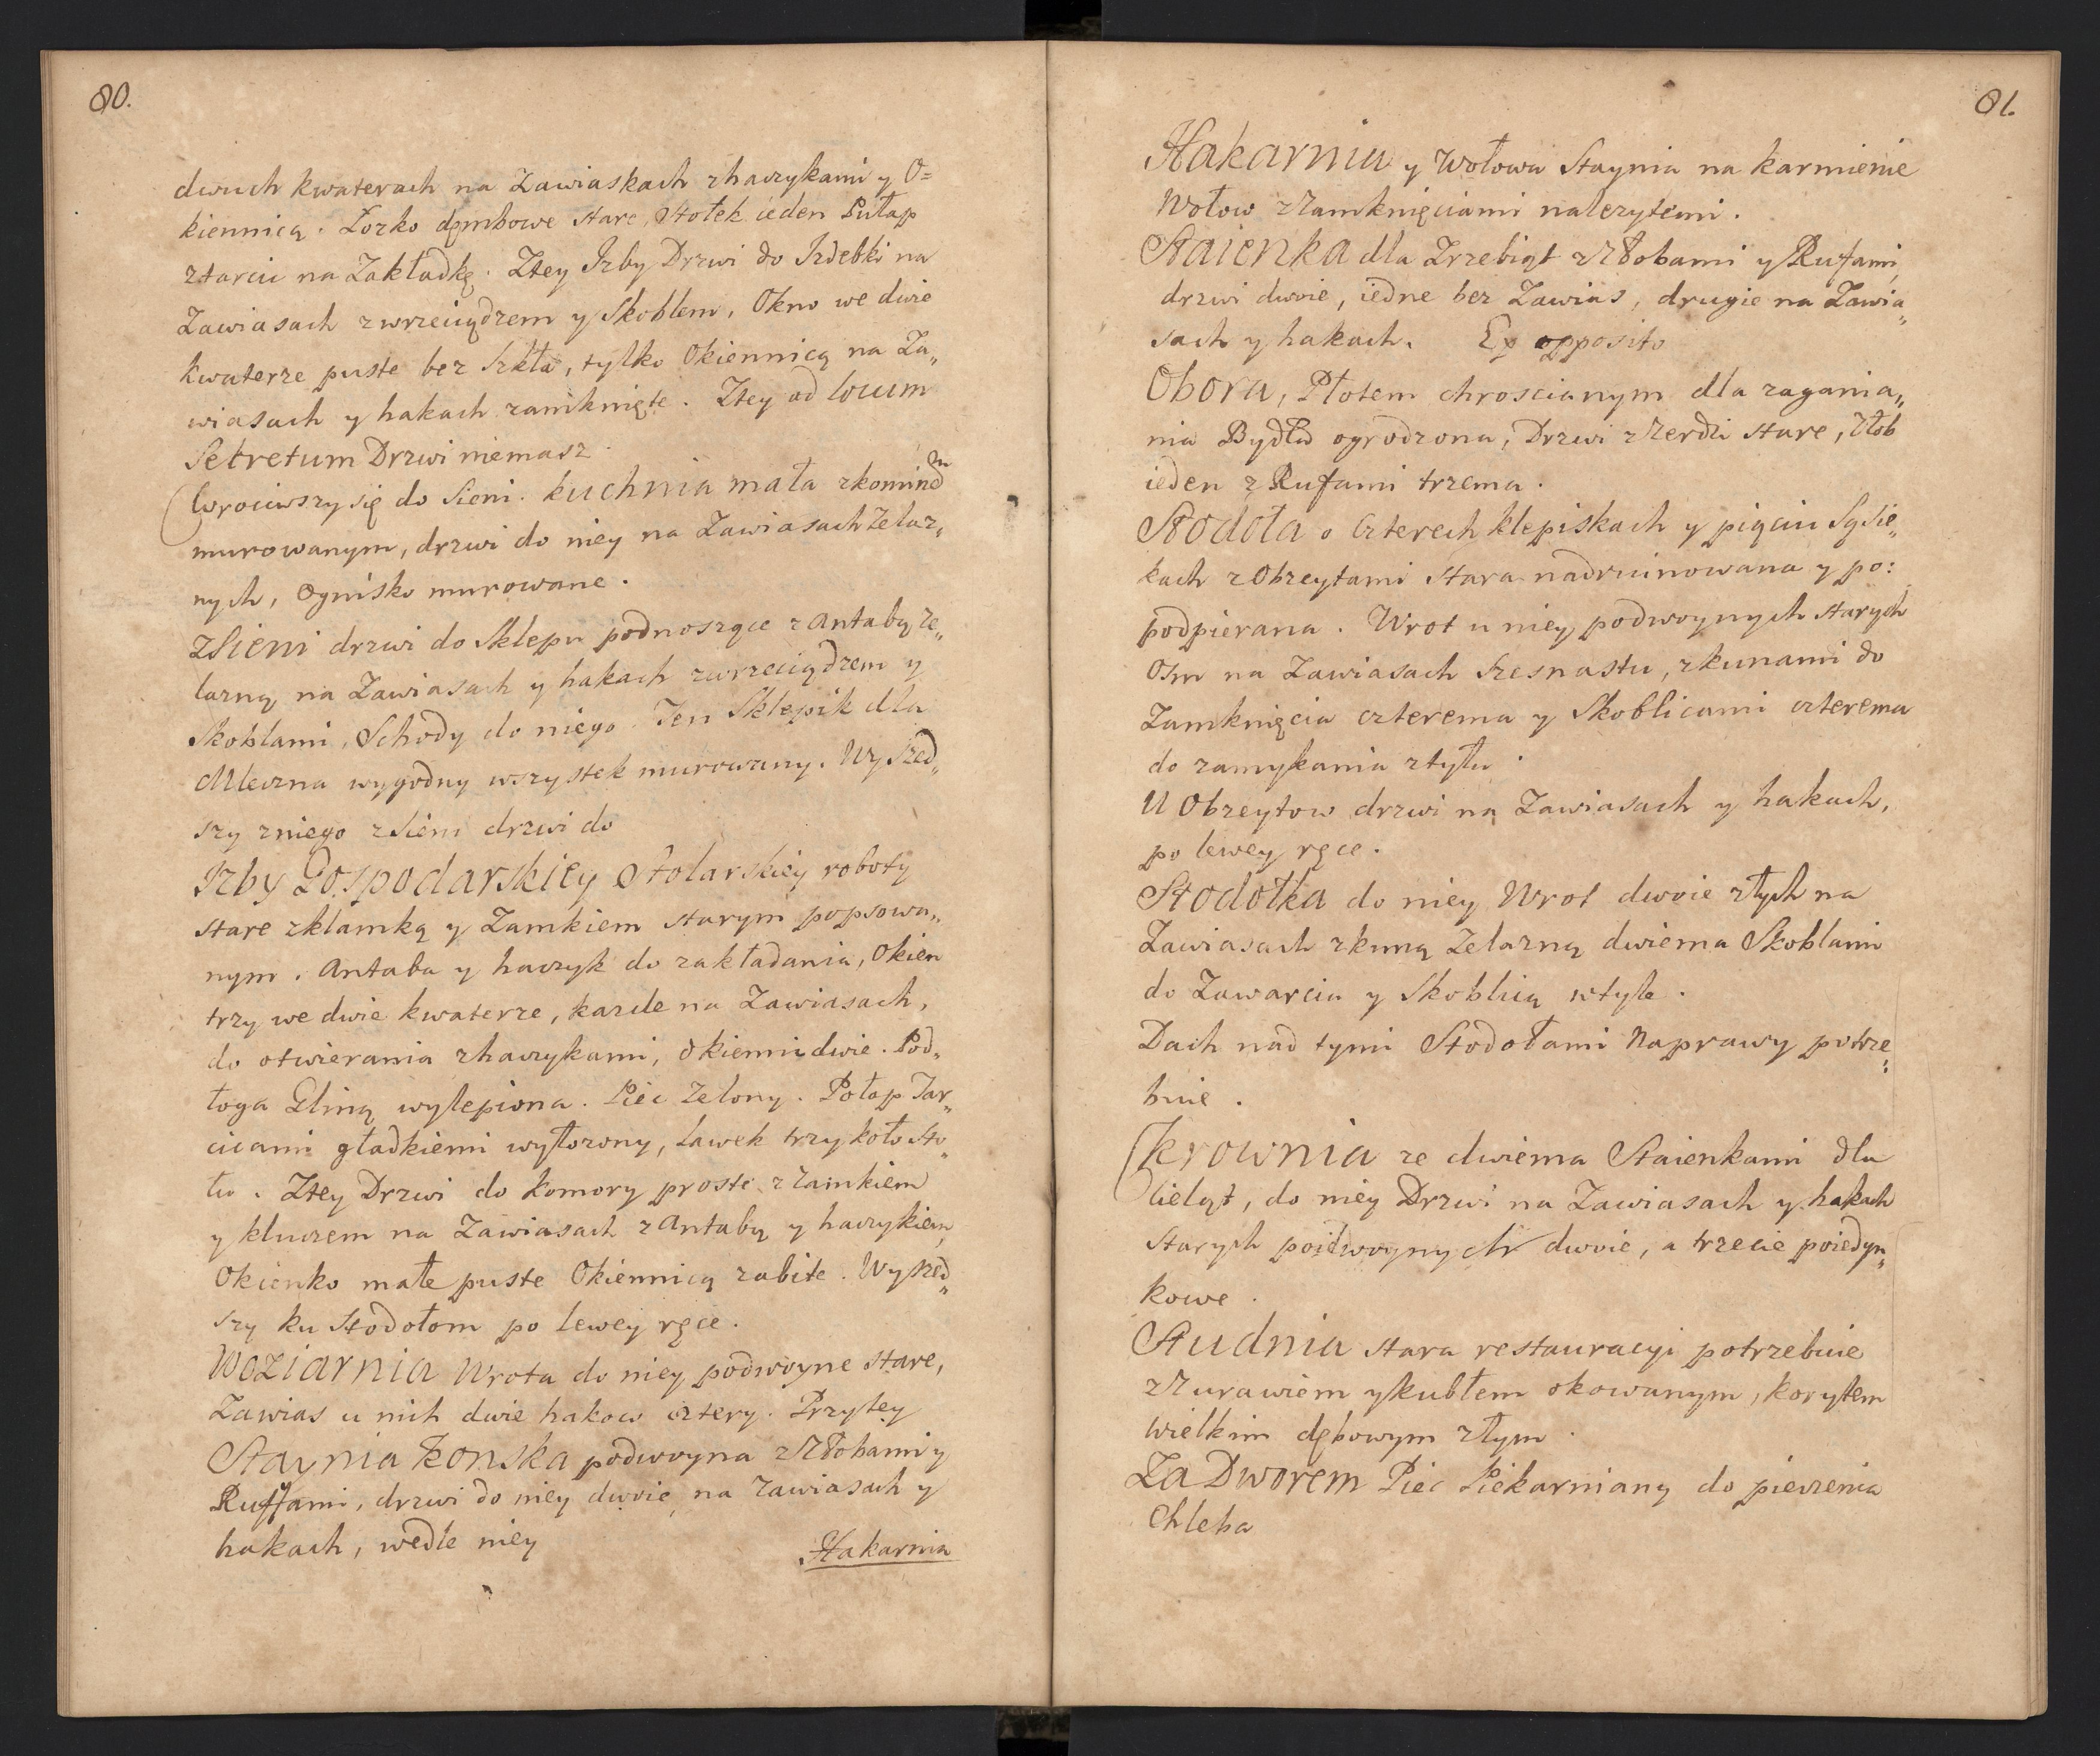 80.
dwuch kwaterach na Zawiaskach z haczykami y O=
kiennicą. Łozko dęmbowe stare, Stołek ieden Pułap
z tarcic na Zakładkę. Ztey Izby Drzwi do Izdebki na
Zawiasach z wrzeciądzem y Skoblem, Okno we dwie
kwaterze puste bez Szkła, tylko Okiennicą na Za„
wiasach y hakach zamknięte. Ztey ad locum
Secretum Drzwi niemasz.
Wrociwszy się do Sieni. kuchnia mała z kominem
murowanym, drzwi do niey na Zawiasach Zelaz„
nych, Ognisko murowane.
Z Sieni drzwi do Sklepu podnoszące z Antabą że„
lazną na Zawiasach y hakach z wrzeciądzem y
Skoblami, Schody do niego. Ten Sklepik dla
Mleczna wygodny wszystek murowany. Wyszed„
szy z niego z Sieni drzwi do
Izby Gospodarskiey Stolarskiey roboty
stare z klamką y Zamkiem starym popsowa„
nym. Antaba y haczyk do zakładania, Okien
trzy we dwie kwaterze, kazde na Zawiasach,
do otwierania z haczykami, Okiennic dwie. Pod„
łoga Gliną wylepiona. Piec Zelony. Połap Tar„
cicami gładkiemi wyłozony, Ławek trzy koło Sto„
łu. Ztey Drzwi do Komory proste z Zamkiem
y kluczem na Zawiasach z Antabą y haczykiem,
Okienko małe puste Okiennicą zabite. Wyszed„
szy ku Stodołom po lewey ręce.
Woziarnia Wrota do niey podwoyne stare,
Zawias u nich dwie hakow cztery. Przytey
Staynia Konska podwoyna z Złobami y
Ruffami, drzwi do niey dwoie na Zawiasach y
hakach, wedle niey
Hakarnia
81.
Hakarnia y Wołowa Staynia na karmienie
Wołow z Zamknięciami nalezytemi.
Staienka dla Zrzebiąt z Złobami y Rufami,
drzwi dwoie, iedne bez Zawias, drugie na Zawia„
sach y hakach. Ex opposito
Obora, Płotem chroscianym dla zagania„
nia Bydła ogrodzona, Drzwi z Zerdzi stare, Złob
ieden z Rufami trzema.
Stodoła o Czterech klepiskach y pięciu Sąsie„
kach z Obzeytami stara nadruinowana y po:
podpierana. Wrot u niey podwoynych starych
Osm na Zawiasach Szesnastu, z kunami do
Zamknięcia czterema y Skoblicami czterema
do zamykania z tyłu.
U Obzeytow drzwi na Zawiasach y hakach,
po lewey ręce.
Stodołka do niey Wrot dwoie złych na
Zawiasach z kuną Zelazną dwiema Skoblami
do Zawarcia y Skoblicą w tyle.
Dach nad tymi Stodołami Naprawy potrze„
buie.
Krownia ze dwiema Staienkami dla
Cieląt, do niey Drzwi na Zawiasach y hakach
starych podwoynych dwoie, a trzecie poiedyn„
kowe.
Studnia stara restauracyi potrzebuie
z Zurawiem y kubłem okowanym, korytem
wielkim dębowym złym.
Za Dworem Piec Piekarniany do pieczenia
Chleba